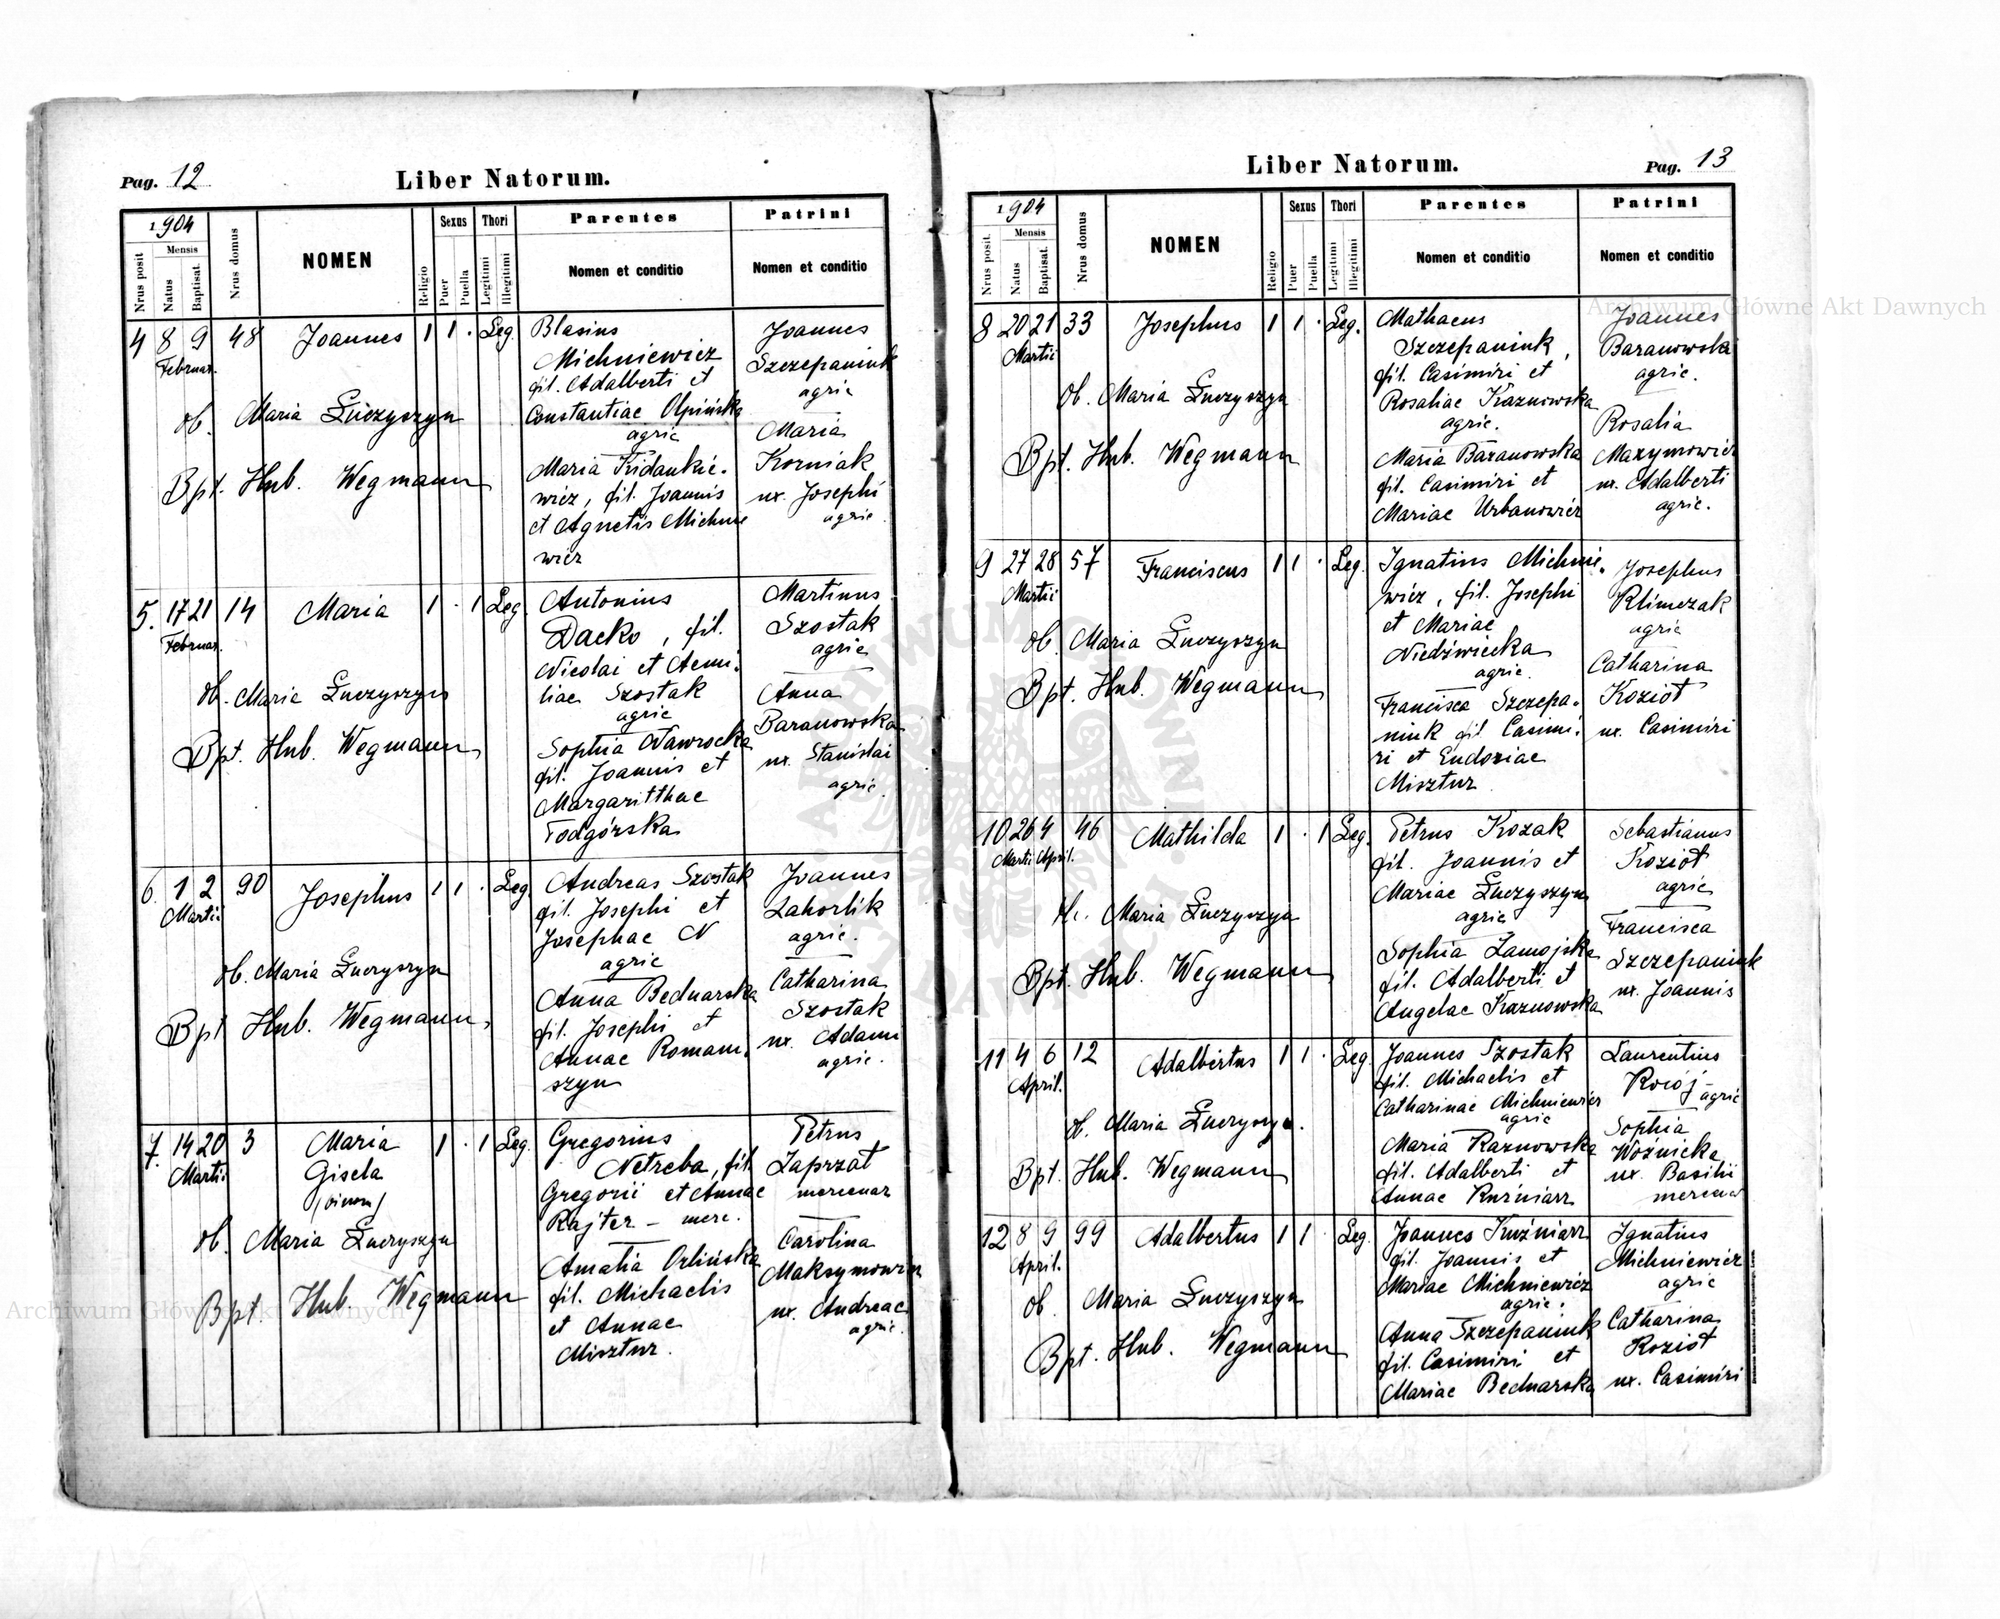 Pag. 12
Liber Natorum.
1904
Mensis
Nrus posit
Natus
Baptisat.
Nrus domus
NOMEN
Religio
Sexus
Puer
Puella
Thori
Legitimi
Illegitimi
Parentes
Nomen et conditio
Patrini
Nomen et conditio
4 8 9 48 Joannes 1 1 . Leg.
Februar.
ob. Maria Łuczyszyn
Bpt. Hub. Wegmann
Blasius
Michniewicz
fil. Adalberti et
Constantiae Olpińska
agric
Maria Fidankie-
wicz, fil. Joannis
et Agnetis Michnie
wicz
Joannes
Szczepaniuk
agric
Maria
Korniak
ux. Josephi
agric.
5. 17 21 14 Maria 1 . 1 Leg.
Februar.
ob. Maria Łuczyszyn
Bpt. Hub. Wegmann
Antonius
Dacko, fil.
Nicolai et Aemi-
liae Szostak
agric
Sophia Nawrocka
fil. Joannis et
Margaritthae
Podgórska
Martinus
Szostak
agric
Anna
Baranowska
ux. Stanislai
agric.
6. 1 2 90 Josephus 1 1 . Leg
Martii
ob. Maria Łuczyszyn
Bpt Hub. Wegmann
Andreas Szostak
fil. Josephi et
Josephae N
agric
Anna Bednarska
fil. Josephi et
Annae Romani-
szyn
Joannes
Zahorlik
agric.
Catharina
Szostak
ux. Adami
agric.
7. 14 20 3 Maria 1 . 1 Leg.
Martii
Gisela
(binom)
ob. Maria Łuczyszyn
Bpt Hub. Wegmann
Gregorius
Netreba, fil.
Gregorii et Annae
Rajter - merc.
Amalia Orlińska
fil. Michaelis
et Annae
Misztur.
Petrus
Zaprzał
mercenar
Carolina
Maksymowicz
ux. Andreae
agric.
Liber Natorum.
Pag. 13
1904
Mensis
Nrus posit.
Natus
Baptisat.
Nrus domus
NOMEN
Religio
Sexus
Puer
Puella
Thori
Legitimi
Illegitimi
Parentes
Nomen et conditio
Patrini
Nomen et conditio
8 20 21 33 Josephus 1 1 . Leg.
Martii
ob. Maria Łuczyszyn
Bpt. Hub. Wegmann
Mathaeus
Szczepaniuk,
fil. Casimiri et
Rosaliae Kaznowska
agric.
Maria Baranowska
fil. Casimiri et
Mariae Urbanowicz
Joannes
Baranowski
agric.
Rosalia
Maxymowicz
ux. Adalberti
agric.
9 27 28 57 Franciscus 1 1 . Leg.
Martii
ob. Maria Łuczyszyn
Bpt. Hub. Wegmann
Ignatius Michnie-
wicz, fil. Josephi
et Mariae
Niedźwiecka
agric.
Francisca Szczepa-
niuk fil. Casimi-
ri et Eudoxiae
Misztur
Josephus
Klimczak
agric
Catharina
Kozioł
ux. Casimiri
10 26 4 46 Mathilda 1 . 1 Leg.
Martii April.
ob. Maria Łuczyszyn
Bpt. Hub. Wegmann
Petrus Kozak
fil. Joannis et
Mariae Łuczyszyn
agric
Sophia Zamojska
fil. Adalberti et
Angelae Kaznowska
Sebastianus
Kozioł
agric
Francisca
Szczepaniuk
ux. Joannis
11 4 6 12 Adalbertus 1 1 . Leg
April.
ob. Maria Łuczyszyn.
Bpt. Hub. Wegmann
Joannes Szostak
fil. Michaelis et
Catharinae Michniewicz
agric
Maria Kaznowska
fil. Adalberti et
Annae Kuźniarz
Laurentius
agric
Sophia
Woźnicka
ux. Basilii
mercenar
12 8 9 99 Adalbertus 1 1 . Leg.
April.
ob. Maria Łuczyszyn
Bpt. Hub. Wegmann
Joannes Kuźniarz
fil. Joannis et
Mariae Michniewicz
agric.
Anna Szczepaniuk
fil. Casimiri et
Mariae Bednarska
Ignatius
Michniewicz
agric
Catharina
Kozioł
ux. Casimiri
Archiwum Główne Akt Dawnych
Archiwum Główne Akt Dawnych
ARCHIWUM GŁÓWNE AKT DAWNYCH